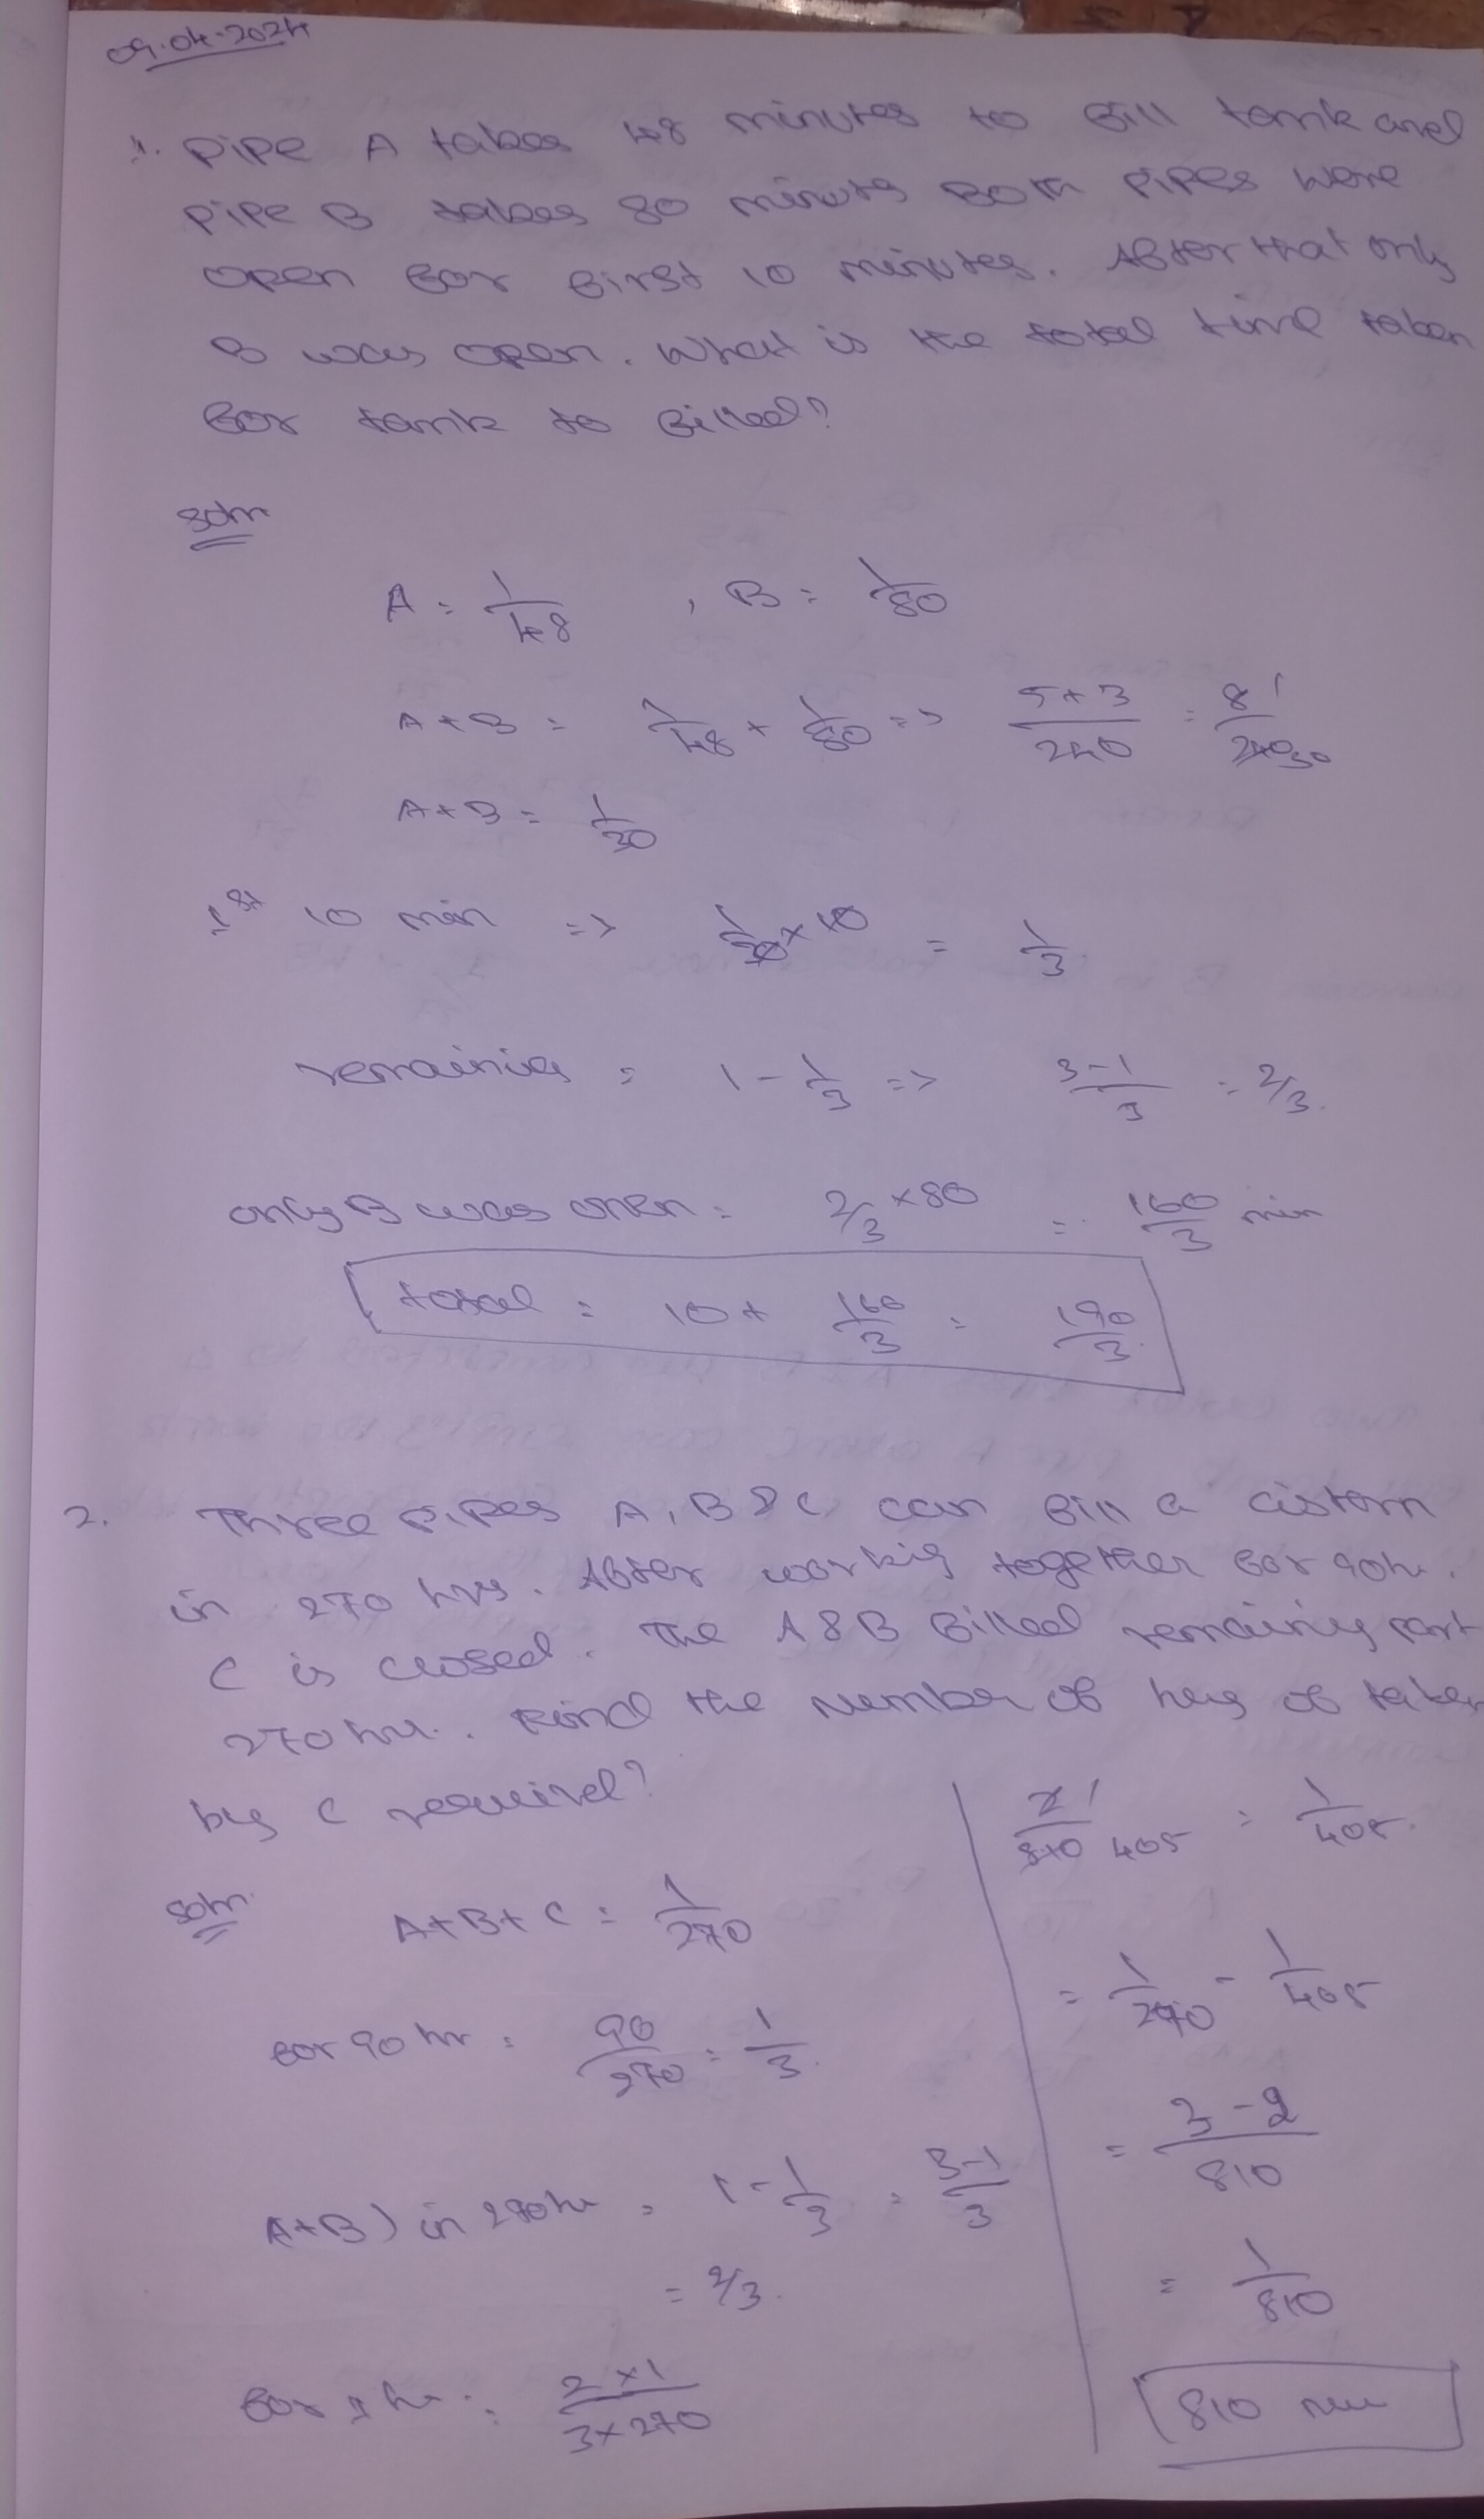 09.04.2024
1. Pipe A takes 48 minutes to fill tank and
pipe B takes 80 minuts Both pipes were
open for first 10 minutes. After that only
B was open. What is the total time taken
for tank to filled?
Soln
A = 1/48 , B = 1/80
A+B = 1/48 + 1/80 => 5+3/240 = 8/240 1/30
A+B = 1/30
1st 10 min => 1/30 x 10 = 1/3
remaining = 1 - 1/3 => 3-1/3 = 2/3.
only B was open = 2/3 x 80 = 160/3 min
total = 10 + 160/3 = 190/3.
2. Three pipes A, B & C can fill a cistern
in 270 hrs. After workig together for 90hr.
C is closed. The A & B filled remaining part
270 hr. Find the number of hrs of taken
by C required?
Soln.
A+B+C = 1/270
for 90 hr = 90/270 = 1/3.
A+B) in 270hr = 1 - 1/3 = 3-1/3
= 2/3.
for 1 hr = 2x1/3x270
2/810 1/405 = 1/405.
= 1/270 - 1/405
= 3-2/810
= 1/810
810